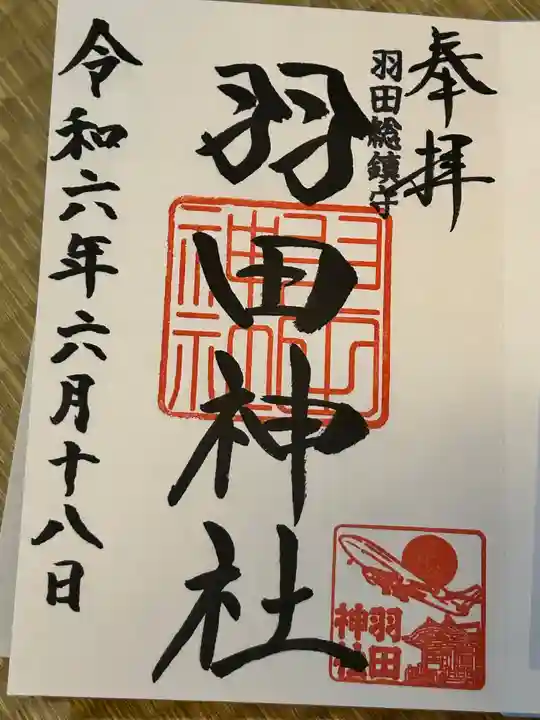 奉拝
羽田総鎮守
羽田神社
令和六年六月十八日
羽田
神社